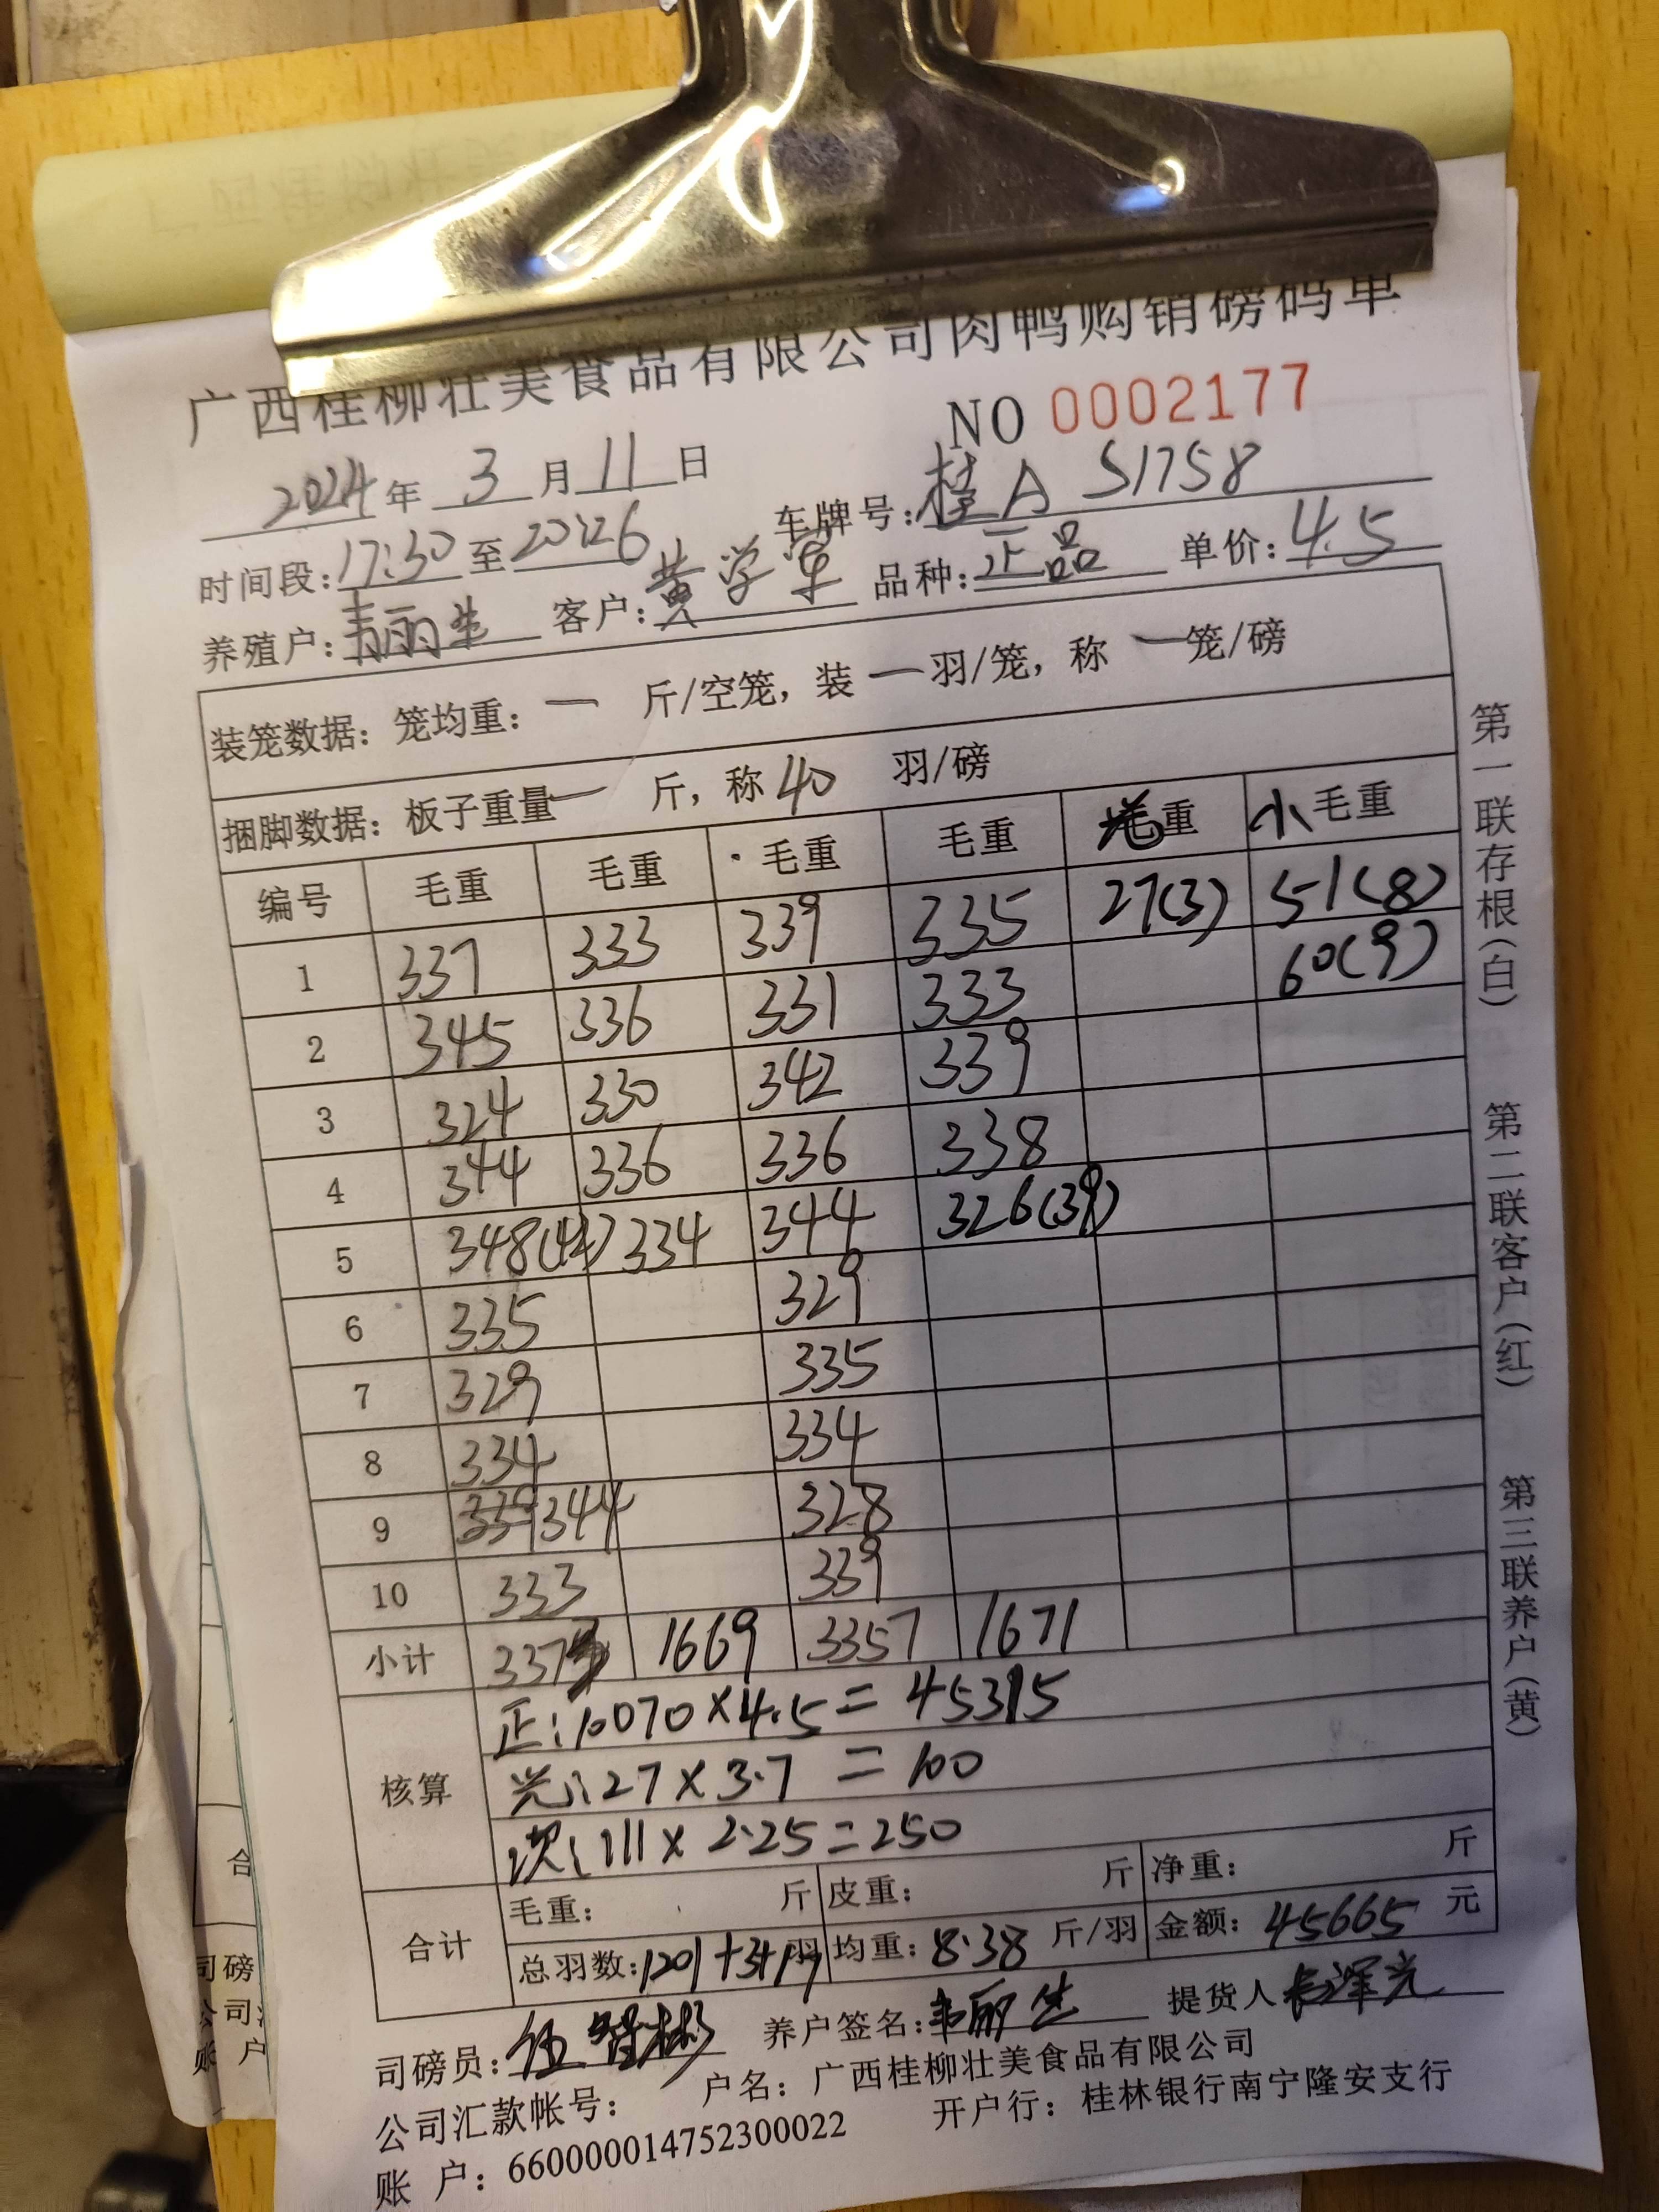 广西桂柳壮美食品有限公司肉鸭购销磅码单
NO 0002177
2024年 3 月 11 日
车牌号: 桂A S1758
时间段: 17:30 至 20:26
品种: 正品 单价: 4.5
养殖户: 韦丽生 客户: 黄学军
装笼数据: 笼均重: 一 斤/空笼, 装 一 羽/笼, 称 一 笼/磅
捆脚数据: 板子重量 一 斤, 称 40 羽/磅
编号 毛重 毛重 毛重 毛重 光重 小毛重
1 337 333 339 335 27(3) 51(8)
2 345 336 331 333 60(9)
3 324 330 342 339
4 344 336 336 338
5 348(42) 334 344 326(39)
6 335 329
7 329 335
8 334 334
9 344 328
10 333 339
小计 3373 1669 3357 1671
核算
正: 10070×4.5=45315
光: 27×3.7=100
次: 111×2.25=250
合计
毛重: 斤 皮重: 斤 净重: 斤
总羽数: 1201+3+17羽 均重: 8.38 斤/羽 金额: 45665 元
司磅员: 养户签名: 韦丽生 提货人
公司汇款帐号: 户名: 广西桂柳壮美食品有限公司
账 户: 660000014752300022 开户行: 桂林银行南宁隆安支行
第一联存根(白) 第二联客户(红) 第三联养户(黄)
合
司磅
公司
账 户